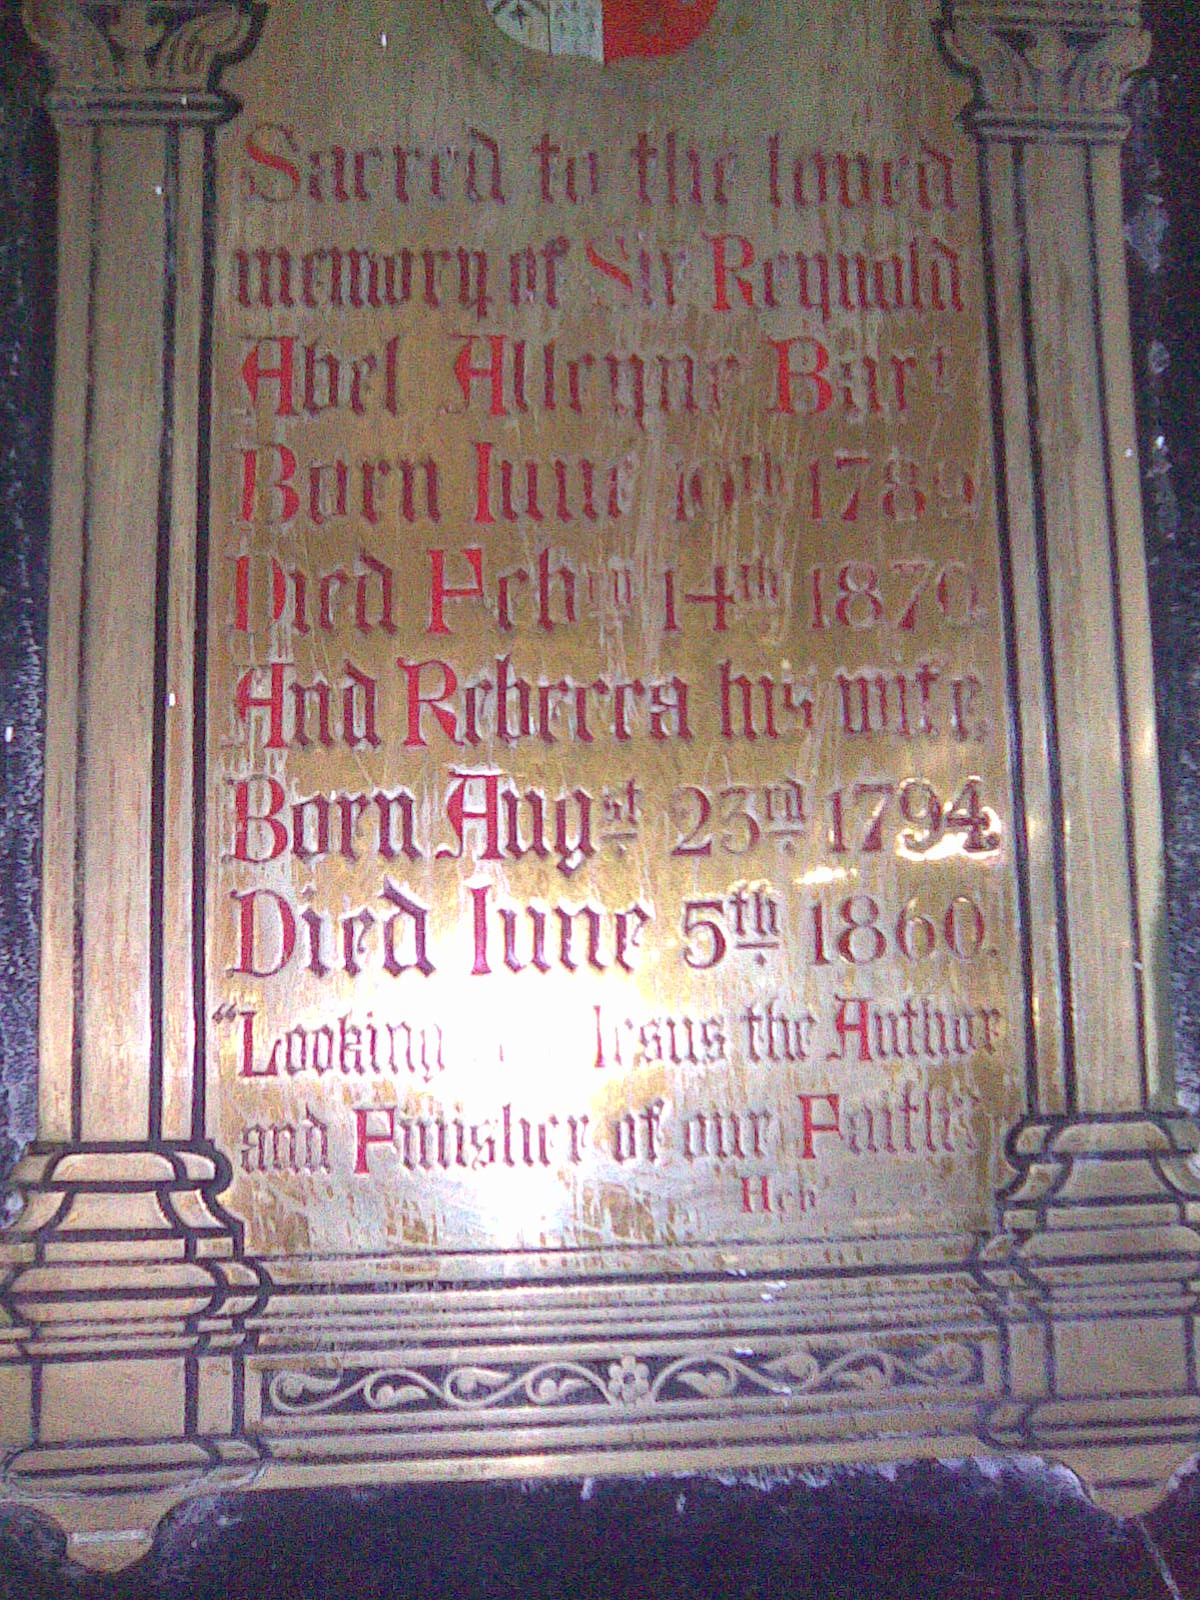 Sacred to the loved
memory of Sir Reynold
Abel Alleyne Bart
Born Iune 10th 1789
Died Feb 14th 1870
And Rebecca his wife,
Born Augst 23rd 1794.
Died Iune 5th 1860.
“Looking Iesus the Author
and Finisher of our Faith”
Heb